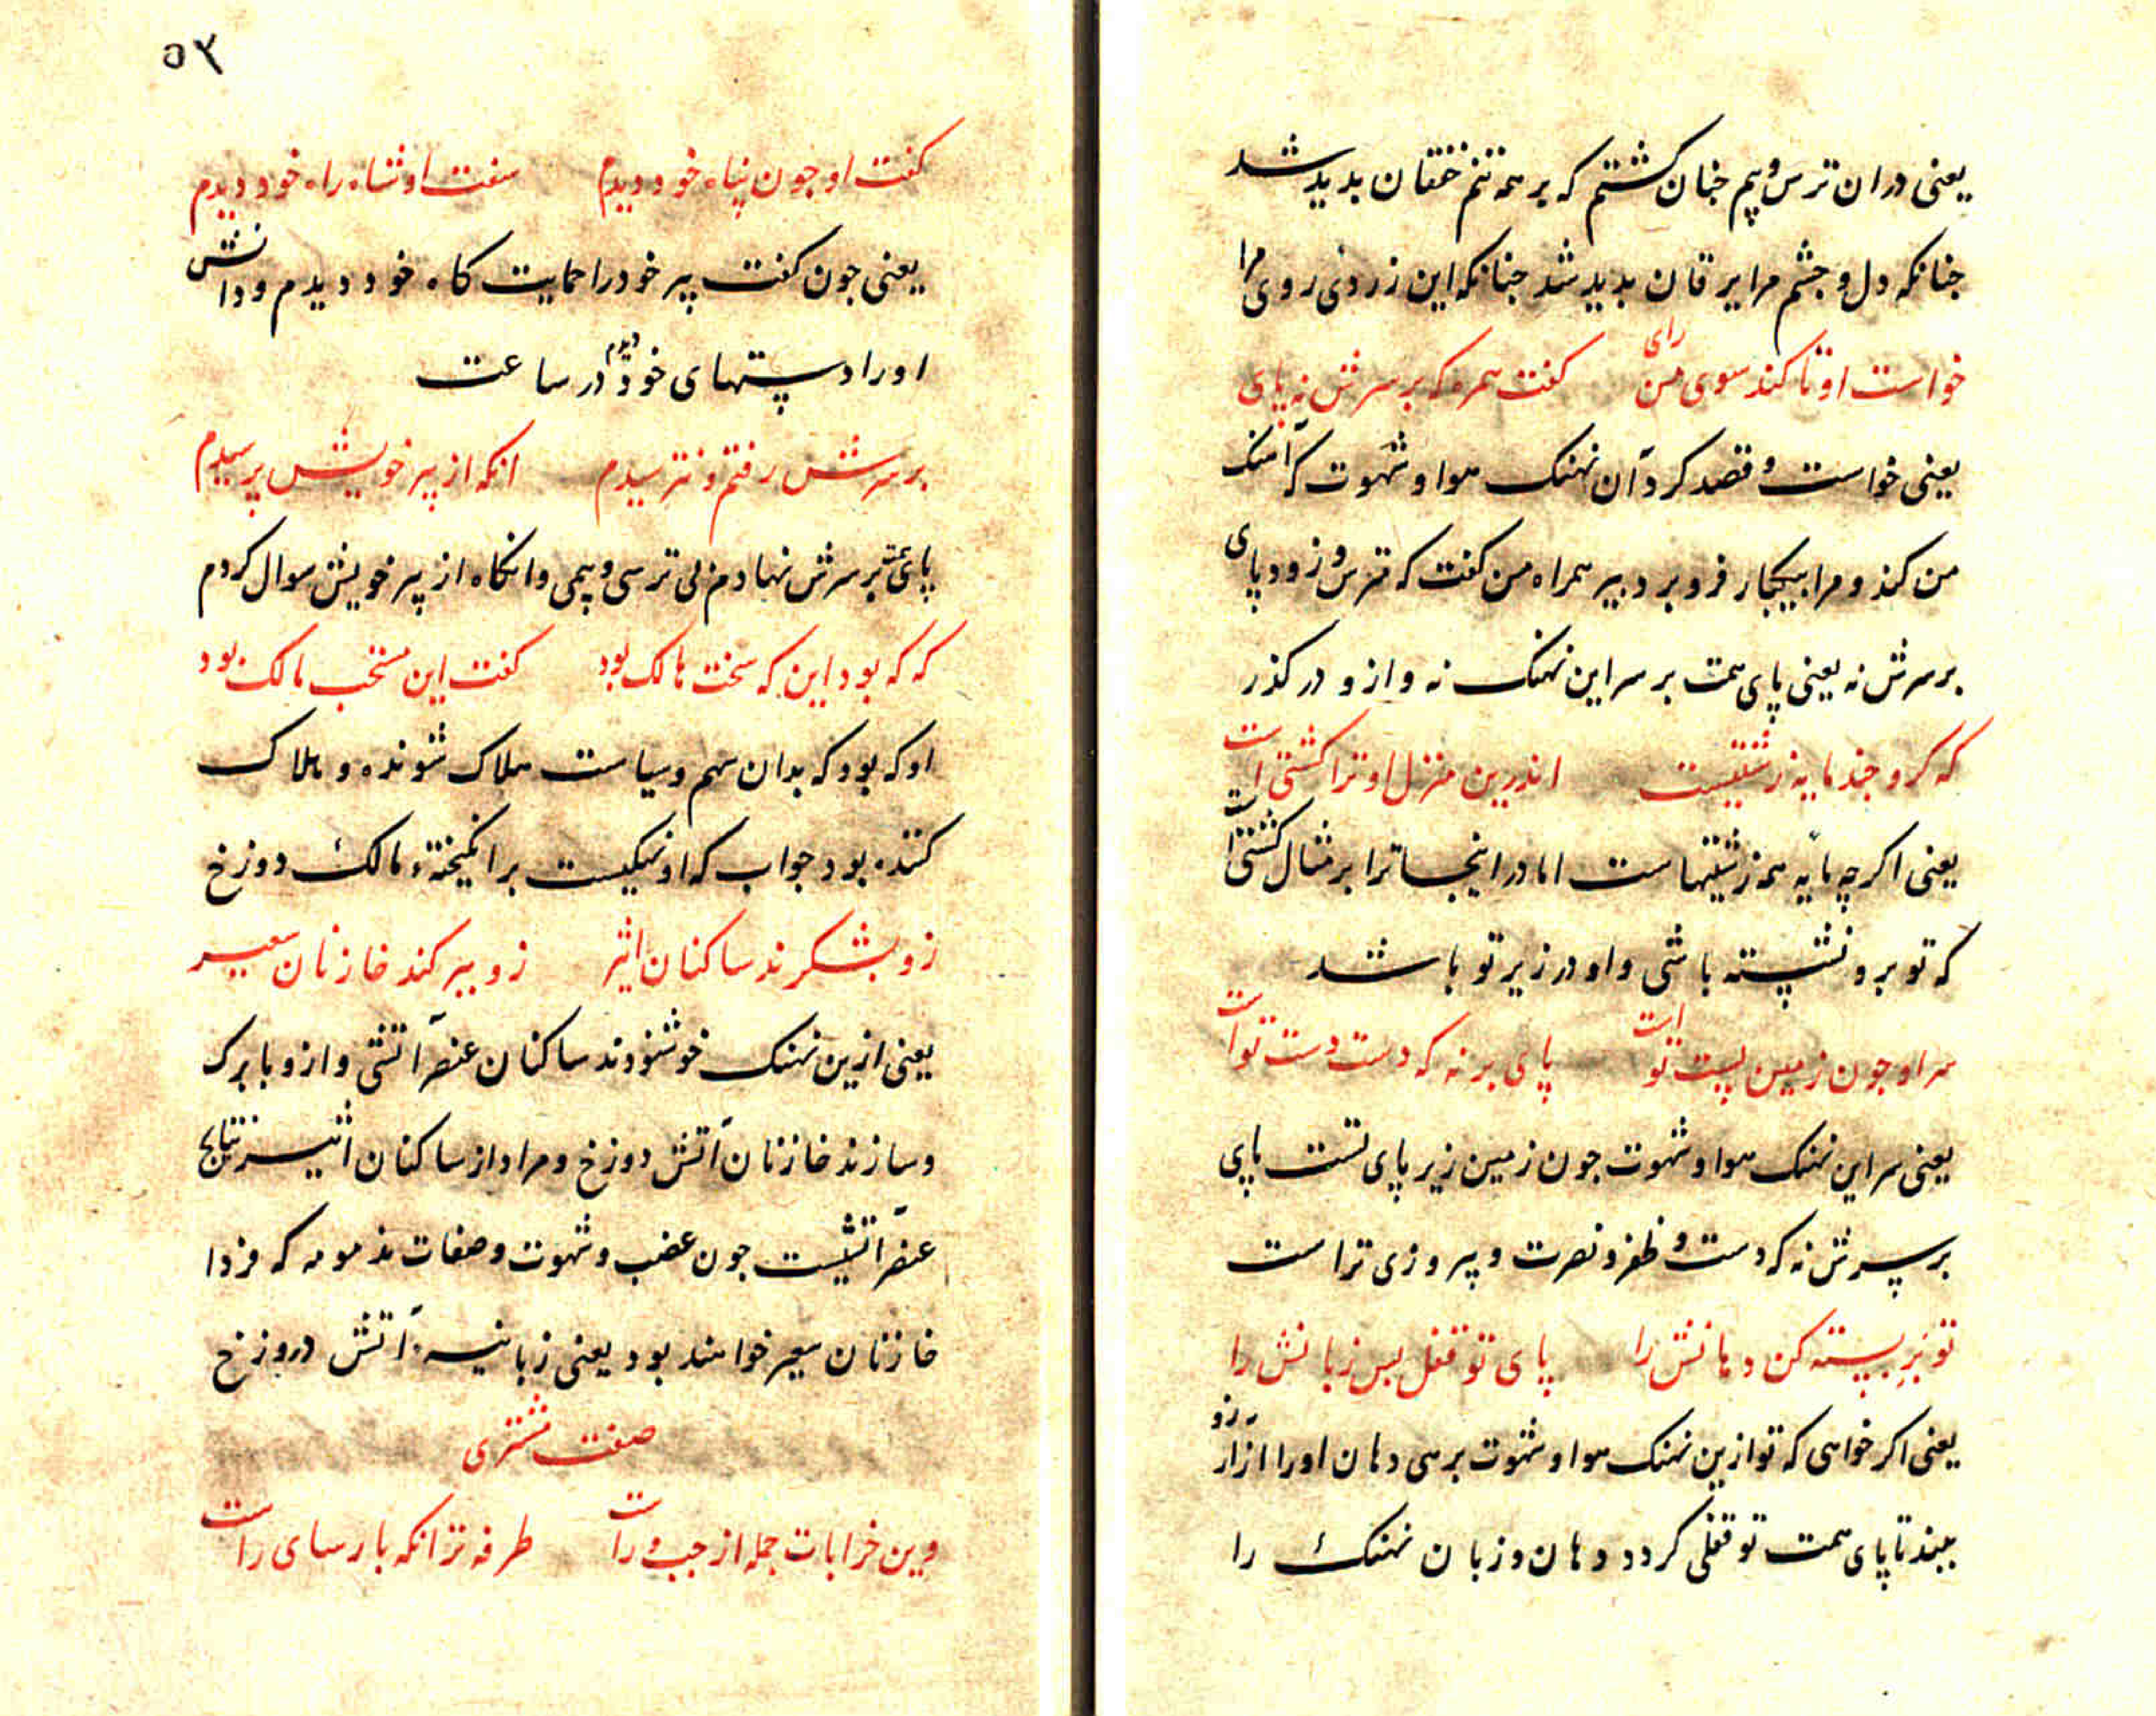 یعنی دران ترس و بیم جنان کشتم که بر همه تنم خفقان بدید شد
جنانکه دل و جشم مرا یرقان بدید شد جنانکه این زردی روی مرا
خواست او تا کند سوی من رای کفت همره که بر سرش نه پای
یعنی خواست و قصد کرد آن نهنک هوا و شهوت که آهنک
من کند و مرا بیکبار فرو برد پیر همراه من کفت که مترس و زود پای
بر سرش نه یعنی پای همت بر سر این نهنک نه و ازو در کذر
که کرو جند مایه زشتیست اندرین منزل او ترا کشتی است
یعنی اکر چه مایه همه زشتیهاست اما در اینجا ترا بر مثال کشتی است
که تو برو نشسته باشی و او در زیر تو باشد
سر او جون زمین پست تو است پای بر نه که دست دست تو است
یعنی سر این نهنک هوا و شهوت جون زمین زیر پای تست پای
بر سرش نه که دست و ظفر و نصرت و پیروزی تراست
تو بزیر بسته کن دهانش را پای تو قفل بس زبانش را
یعنی اکر خواهی که تو ازین نهنک هوا و شهوت برهی دهان او را از آرزو
ببند تا پای همت تو قفلی کردد دهان و زبان نهنک را
۵۳
کفت او جون پناه خود دیدم سفت او شاه راه خود دیدم
یعنی جون کفت پیر خود را حمایت کاه خود دیدم و دانش
او را دستهای خود دیدم در ساعت
بر سرش رفتم و نترسیدم انکه از پیر خویش پرسیدم
پای همت بر سرش نهادم بی ترسی و بیمی وانکاه از پیر خویش سوال کردم
که که بود این که سخت هالک بود کفت این مستخب مالک بود
او که بود که بدان سهم و سیاست هلاک شونده و هلاک
کننده بود جواب که او نهنکیست برانکیخته مالک دوزخ
زو بشکرند ساکنان اثیر زو ببر کند خازنان سعیر
یعنی ازین نهنک خوشنودند ساکنان عنصر آتشی و ازو با برک
و سازند خازنان آتش دوزخ و مراد از ساکنان اثیر نتایج
عنصر آتشیست جون غضب و شهوت و صفات مذمومه که فردا
خازنان سعیر خواهند بود یعنی زبانیه آتش دوزخ
صفت مشتری
وین خرابات جمله از جب و راست طرفه تر انکه بارسای راست